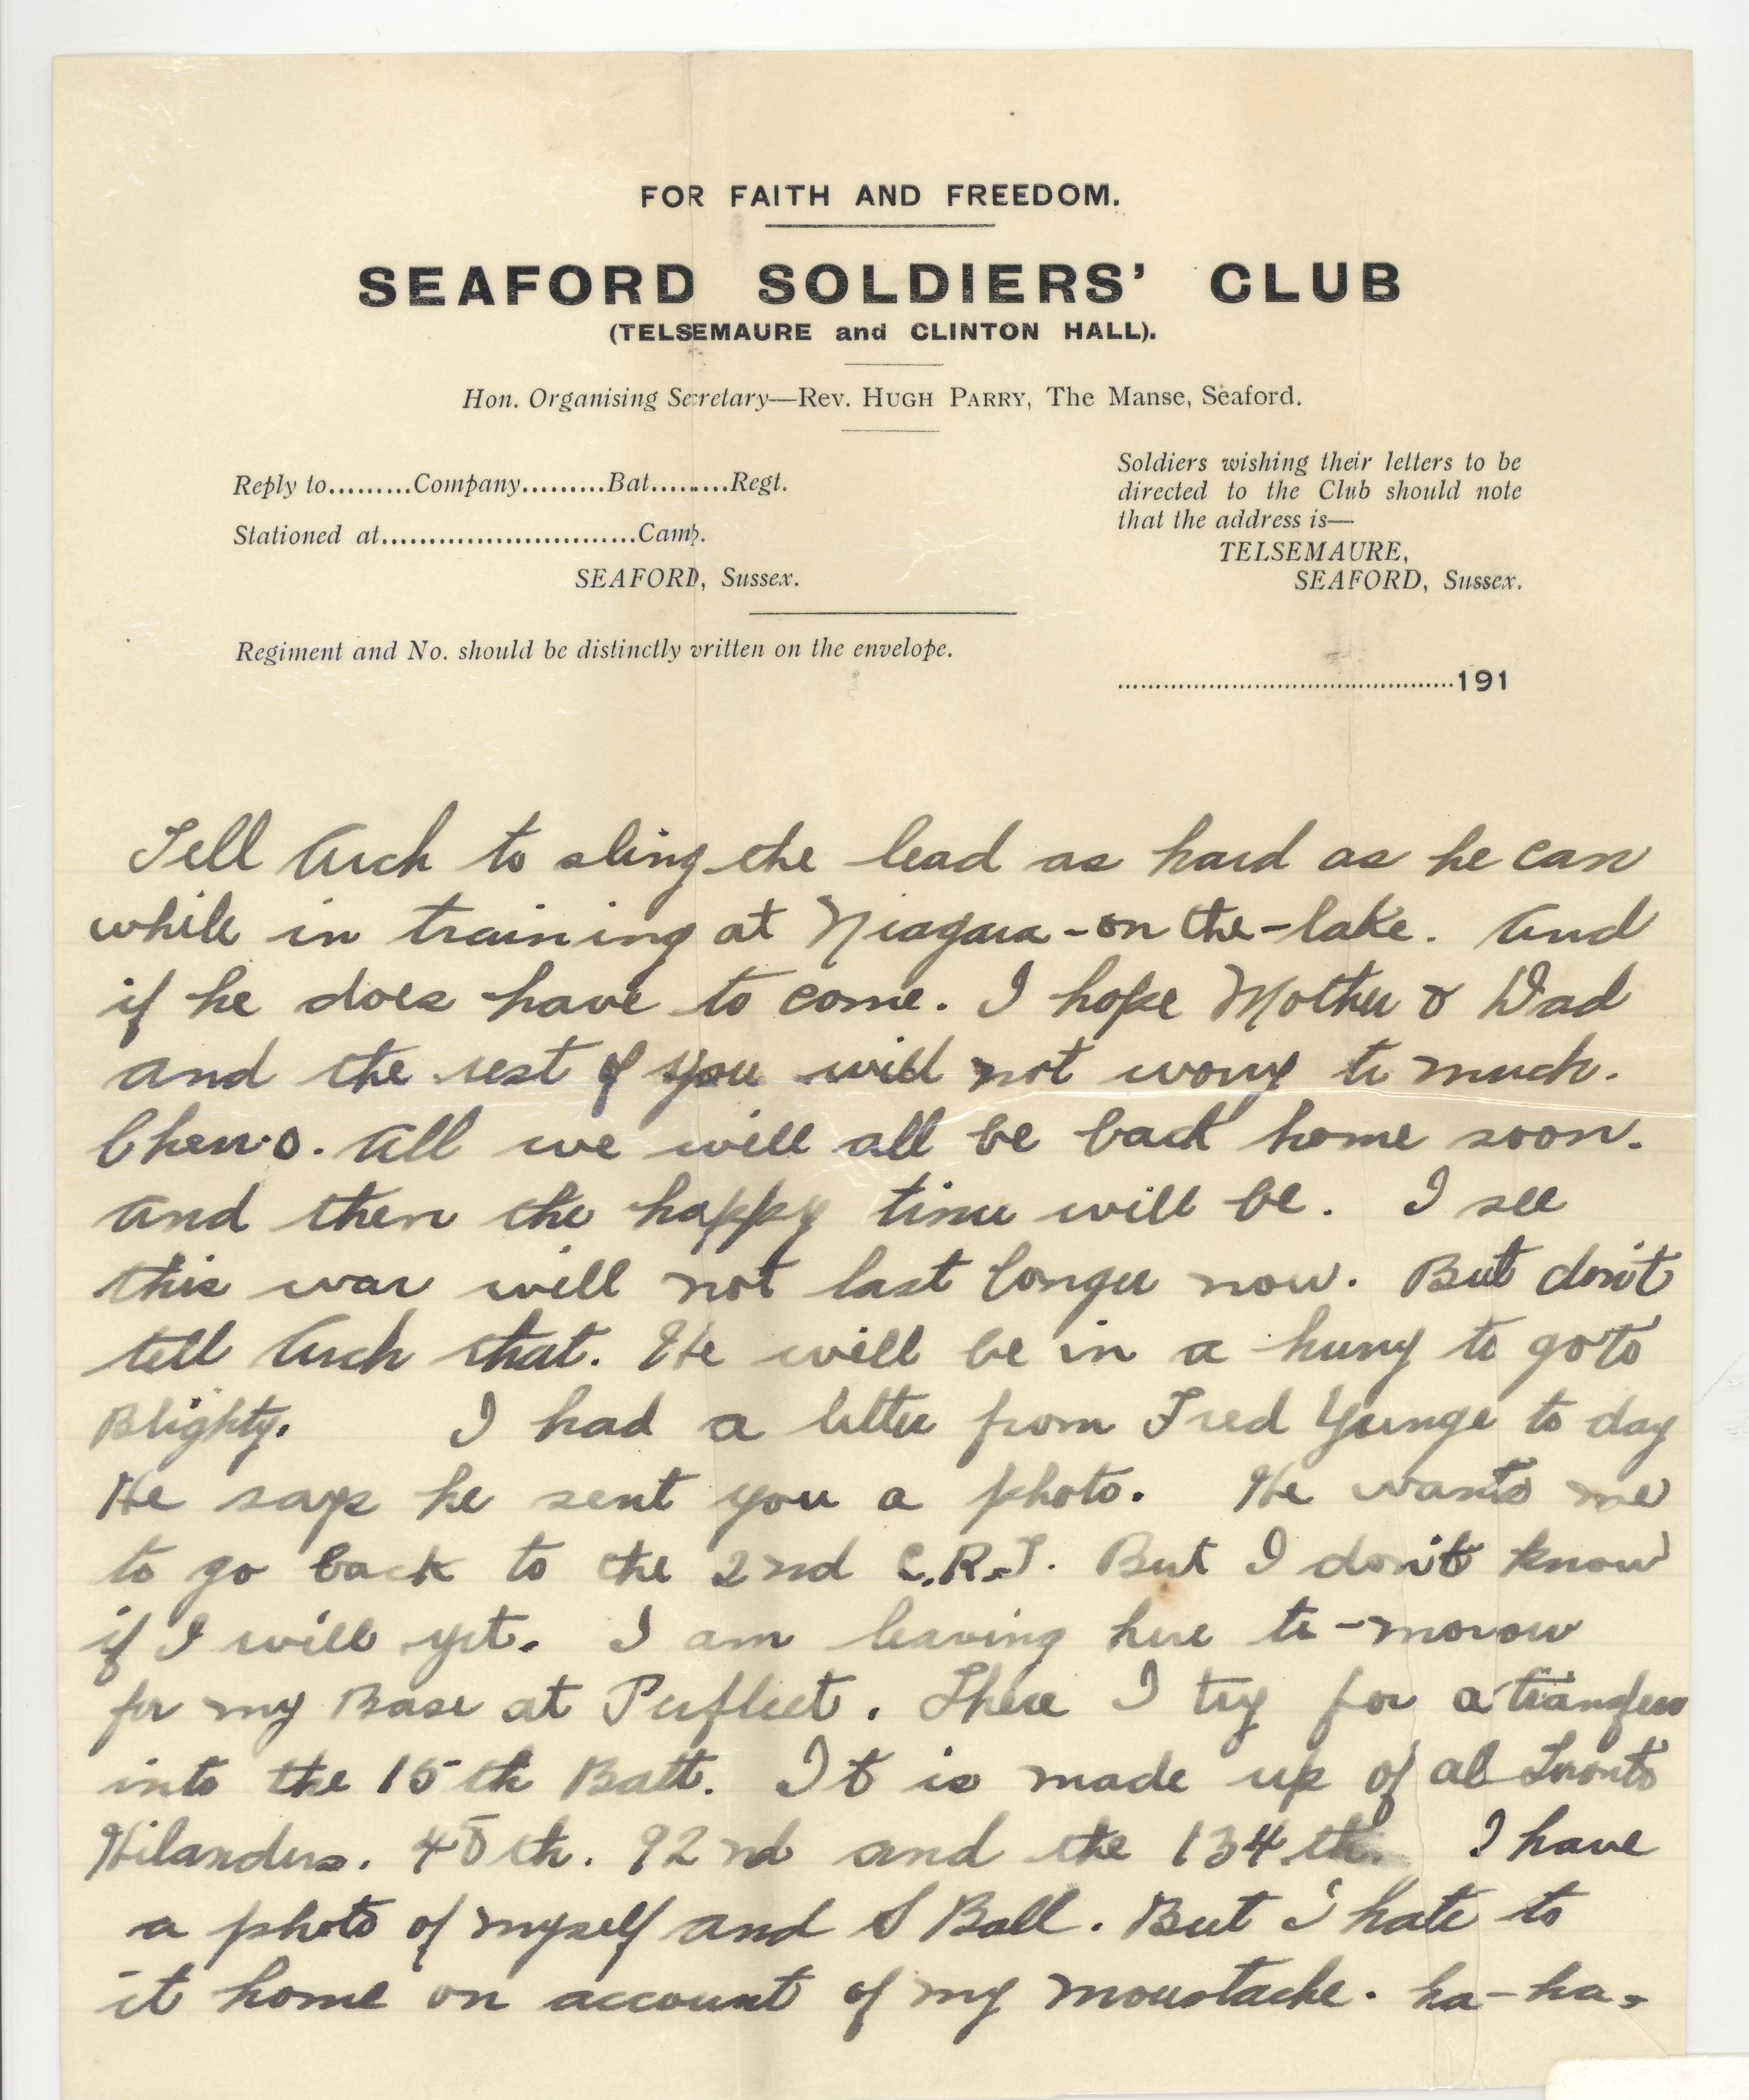 FOR FAITH AND FREEDOM.
SEAFORD SOLDIERS' CLUB
(TELSEMAURE and CLINTON HALL).
Hon. Organising Secretary—Rev. HUGH PARRY, The Manse, Seaford.
Reply to.........Company.........Bat.........Regt.
Stationed at...........................Camp.
SEAFORD, Sussex.
Soldiers wishing their letters to be
directed to the Club should note
that the address is—
TELSEMAURE,
SEAFORD, Sussex.
Regiment and No. should be distinctly written on the envelope.
............................................191
Tell Arch to sling the lead as hard as he can
while in training at Niagara-on the-lake. And
if he does have to come. I hope Mother & Dad
and the rest of you will not worry to much.
Cheer.o. All we will all be back home soon.
And then the happy time will be. I see
this war will not last longer now. But don't
tell Arch that. He will be in a hurry to go to
Blighty. I had a letter from Fred Yunge to day
He says he sent you a photo. He wants me
to go back to the 2nd C.R.T. But I don't know
if I will yet. I am leaving here to-morow
for my Base at Purfleet. There I try for a transfer
into the 15th Batt. It is made up of al Toronto
Hilanders. 48th. 92nd and the 134th. I have
a photo of myself and S Ball. But I hate to
it home on account of my moustache. ha-ha.